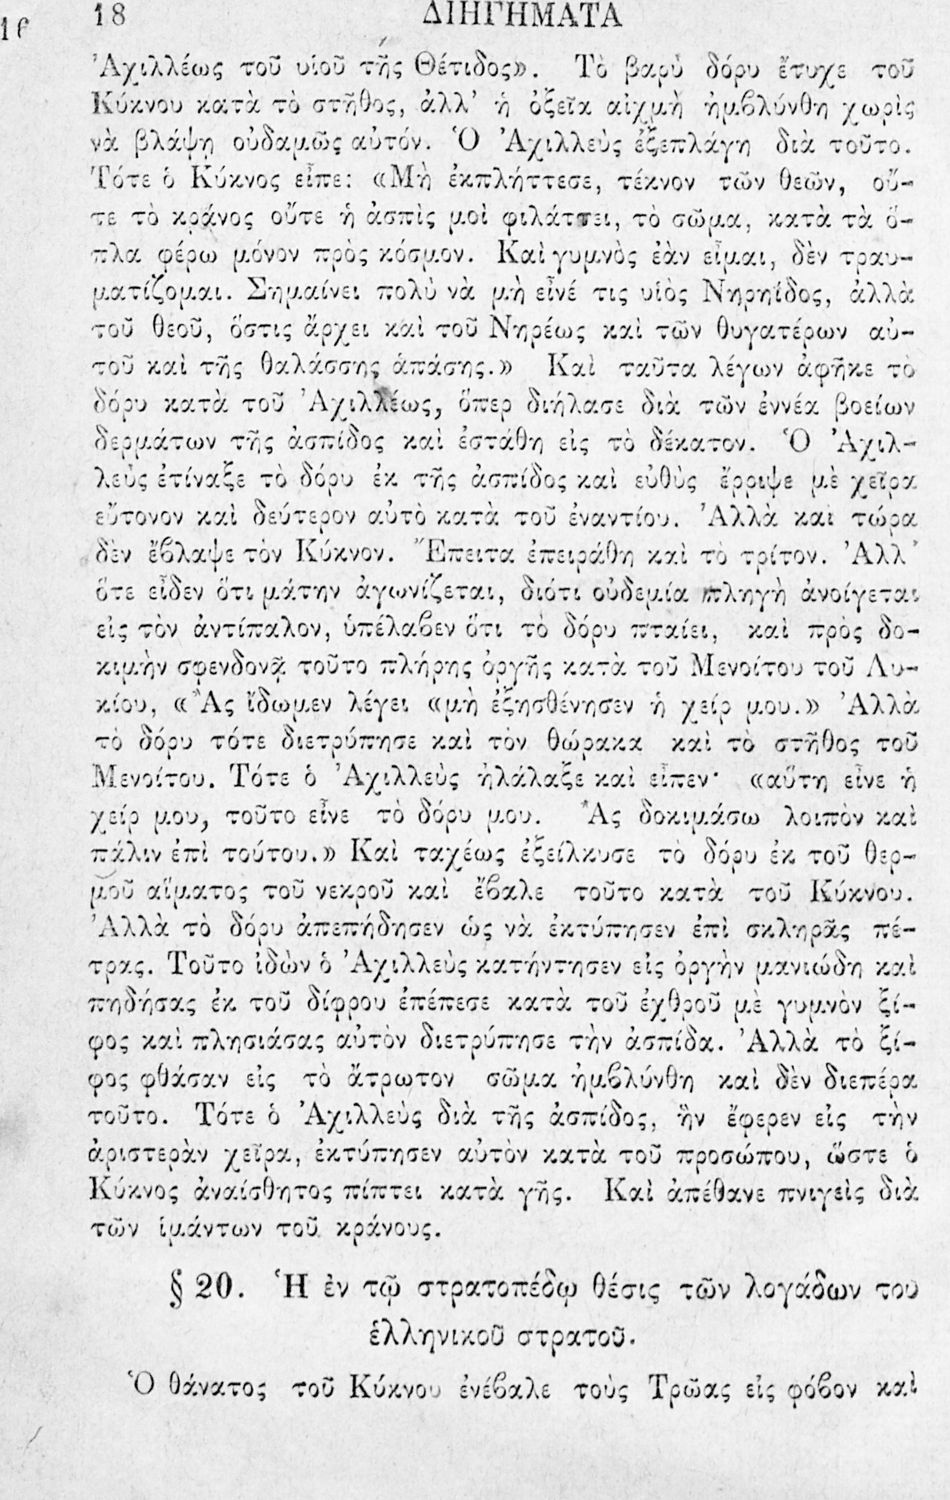 18 ΔΙΗΓΗΜΑΤΑ
Ἀχιλλέως τοῦ υἱοῦ τῆς Θέτιδος». Τὸ βαρὺ δόρυ ἔτυχε τοῦ
Κύκνου κατὰ τὸ στῆθος, ἀλλ’ ἡ ὀξεῖα αἰχμὴ ἠμβλύνθη χωρὶς
νὰ βλάψῃ οὐδαμῶς αὐτόν. Ὁ Ἀχιλλεὺς ἐξεπλάγη διὰ τοῦτο.
Τότε ὁ Κύκνος εἶπε: «Μὴ ἐκπλήττεσε, τέκνον τῶν θεῶν, οὔ-
τε τὸ κράνος οὔτε ἡ ἀσπὶς μοὶ φιλάττει, τὸ σῶμα, κατὰ τὰ ὅ-
πλα φέρω μόνον πρὸς κόσμον. Καὶ γυμνὸς ἐὰν εἶμαι, δὲν τραυ-
ματίζομαι. Σημαίνει πολὺ νὰ μὴ εἶνέ τις υἱὸς Νηρηΐδος, ἀλλὰ
τοῦ θεοῦ, ὅστις ἄρχει καὶ τοῦ Νηρέως καὶ τῶν θυγατέρων αὐ-
τοῦ καὶ τῆς θαλάσσης ἁπάσης.» Καὶ ταῦτα λέγων ἀφῆκε τὸ
δόρυ κατὰ τοῦ Ἀχιλλέως, ὅπερ διήλασε διὰ τῶν ἐννέα βοείων
δερμάτων τῆς ἀσπίδος καὶ ἐστάθη εἰς τὸ δέκατον. Ὁ Ἀχιλ-
λεὺς ἐτίναξε τὸ δόρυ ἐκ τῆς ἀσπίδος καὶ εὐθὺς ἔρριψε μὲ χεῖρα
εὔτονον καὶ δεύτερον αὐτὸ κατὰ τοῦ ἐναντίου. Ἀλλὰ καὶ τώρα
δὲν ἔβλαψε τὸν Κύκνον. Ἔπειτα ἐπειράθη καὶ τὸ τρίτον. Ἀλλ’
ὅτε εἶδεν ὅτι μάτην ἀγωνίζεται, διότι οὐδεμία πληγὴ ἀνοίγεται
εἰς τὸν ἀντίπαλον, ὑπέλαβεν ὅτι τὸ δόρυ πταίει, καὶ πρὸς δο-
κιμὴν σφενδονᾷ τοῦτο πλήρης ὀργῆς κατὰ τοῦ Μενοίτου τοῦ Λυ-
κίου, «Ἂς ἴδωμεν λέγει «μὴ ἐξησθένησεν ἡ χείρ μου.» Ἀλλὰ
τὸ δόρυ τότε διετρύπησε καὶ τὸν θώρακα καὶ τὸ στῆθος τοῦ
Μενοίτου. Τότε ὁ Ἀχιλλεὺς ἠλάλαξε καὶ εἶπεν· «αὕτη εἶνε ἡ
χείρ μου, τοῦτο εἶνε τὸ δόρυ μου. Ἂς δοκιμάσω λοιπὸν καὶ
πάλιν ἐπὶ τούτου.» Καὶ ταχέως ἐξείλκυσε τὸ δόρυ ἐκ τοῦ θερ-
μοῦ αἵματος τοῦ νεκροῦ καὶ ἔβαλε τοῦτο κατὰ τοῦ Κύκνου.
Ἀλλὰ τὸ δόρυ ἀπεπήδησεν ὡς νὰ ἐκτύπησεν ἐπὶ σκληρᾶς πέ-
τρας. Τοῦτο ἰδὼν ὁ Ἀχιλλεὺς κατήντησεν εἰς ὀργὴν μανιώδη καὶ
πηδήσας ἐκ τοῦ δίφρου ἐπέπεσε κατὰ τοῦ ἐχθροῦ μὲ γυμνὸν ξί-
φος καὶ πλησιάσας αὐτὸν διετρύπησε τὴν ἀσπίδα. Ἀλλὰ τὸ ξί-
φος φθάσαν εἰς τὸ ἄτρωτον σῶμα ἠμβλύνθη καὶ δὲν διεπέρα
τοῦτο. Τότε ὁ Ἀχιλλεὺς διὰ τῆς ἀσπίδος, ἣν ἔφερεν εἰς τὴν
ἀριστερὰν χεῖρα, ἐκτύπησεν αὐτὸν κατὰ τοῦ προσώπου, ὥστε ὁ
Κύκνος ἀναίσθητος πίπτει κατὰ γῆς. Καὶ ἀπέθανε πνιγεὶς διὰ
τῶν ἱμάντων τοῦ κράνους.
§ 20. Ἡ ἐν τῷ στρατοπέδῳ θέσις τῶν λογάδων του
ἑλληνικοῦ στρατοῦ.
Ὁ θάνατος τοῦ Κύκνου ἐνέβαλε τοὺς Τρῶας εἰς φόβον καὶ